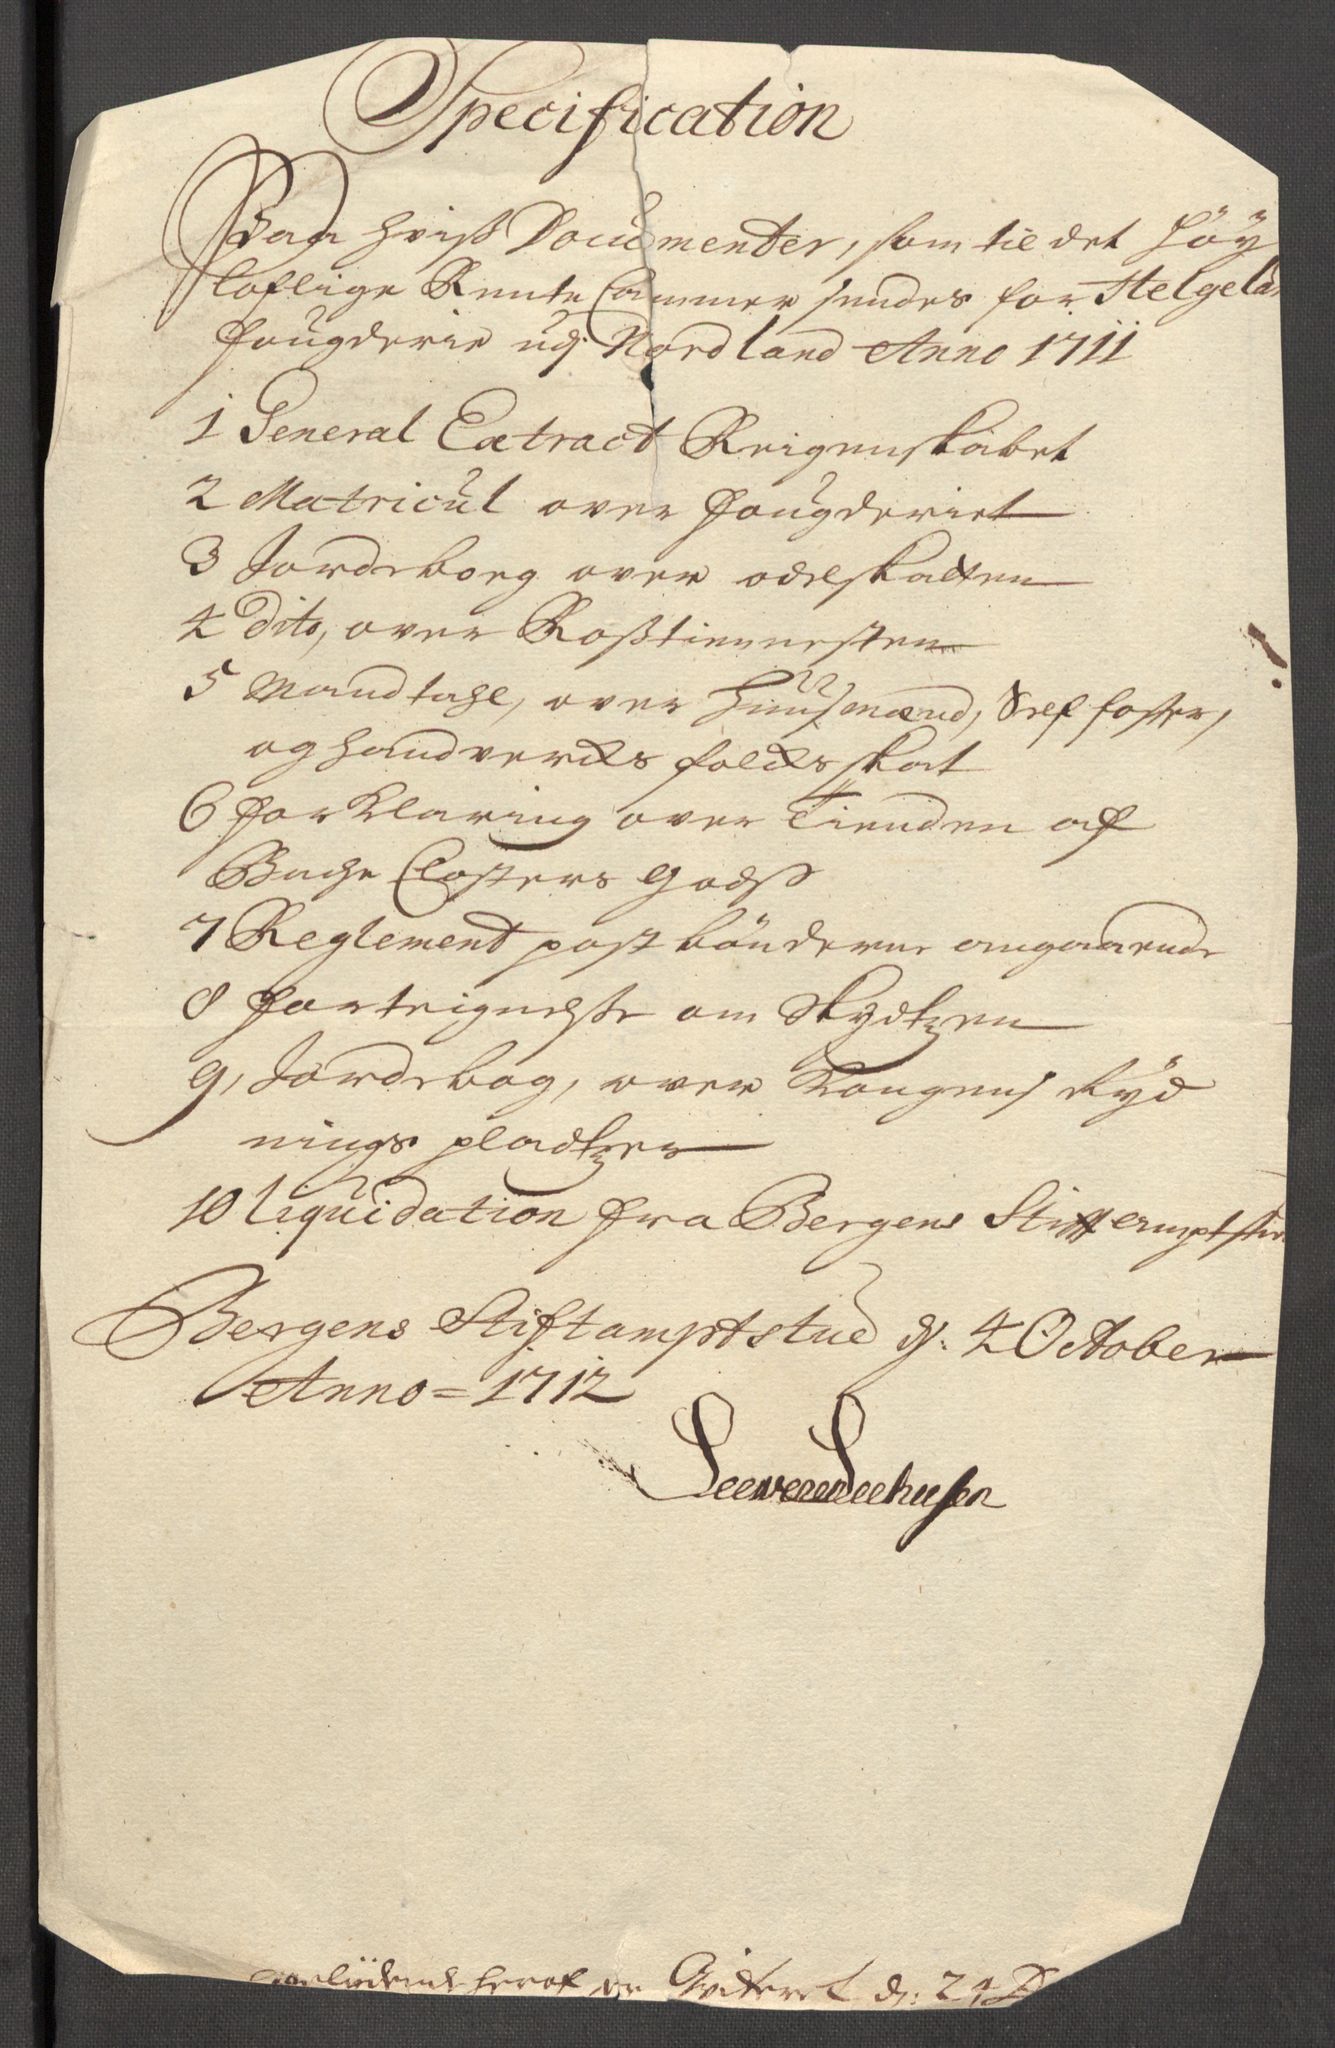 Specification
Paa hviß Documenter, som til det höy
loflige Rente Cammer sendes for Helgelan
fougderie udj Nordland Anno 1711
1 General Extract Reigenskabet
2 Matricul over fougderiet
3 Jordebog over odelskatten
4 Dito, over Roßtiennesten
5 Mandtahl, over huusmænd, Self foster,
og handvercks folckis skat
6 forklaring over Tienden af
Bache Closters Godß
7 Reglement postbönderne angaaende
8 forteignelße om Skydtzen
9, Jordebog, over Kongens Ryd
nings pladtzer
10 Liquidation fra Bergens Stiftampt stu
Bergens Stiftamptstue d. 4 October
Anno = 1712
herof er Qviteret d: 24